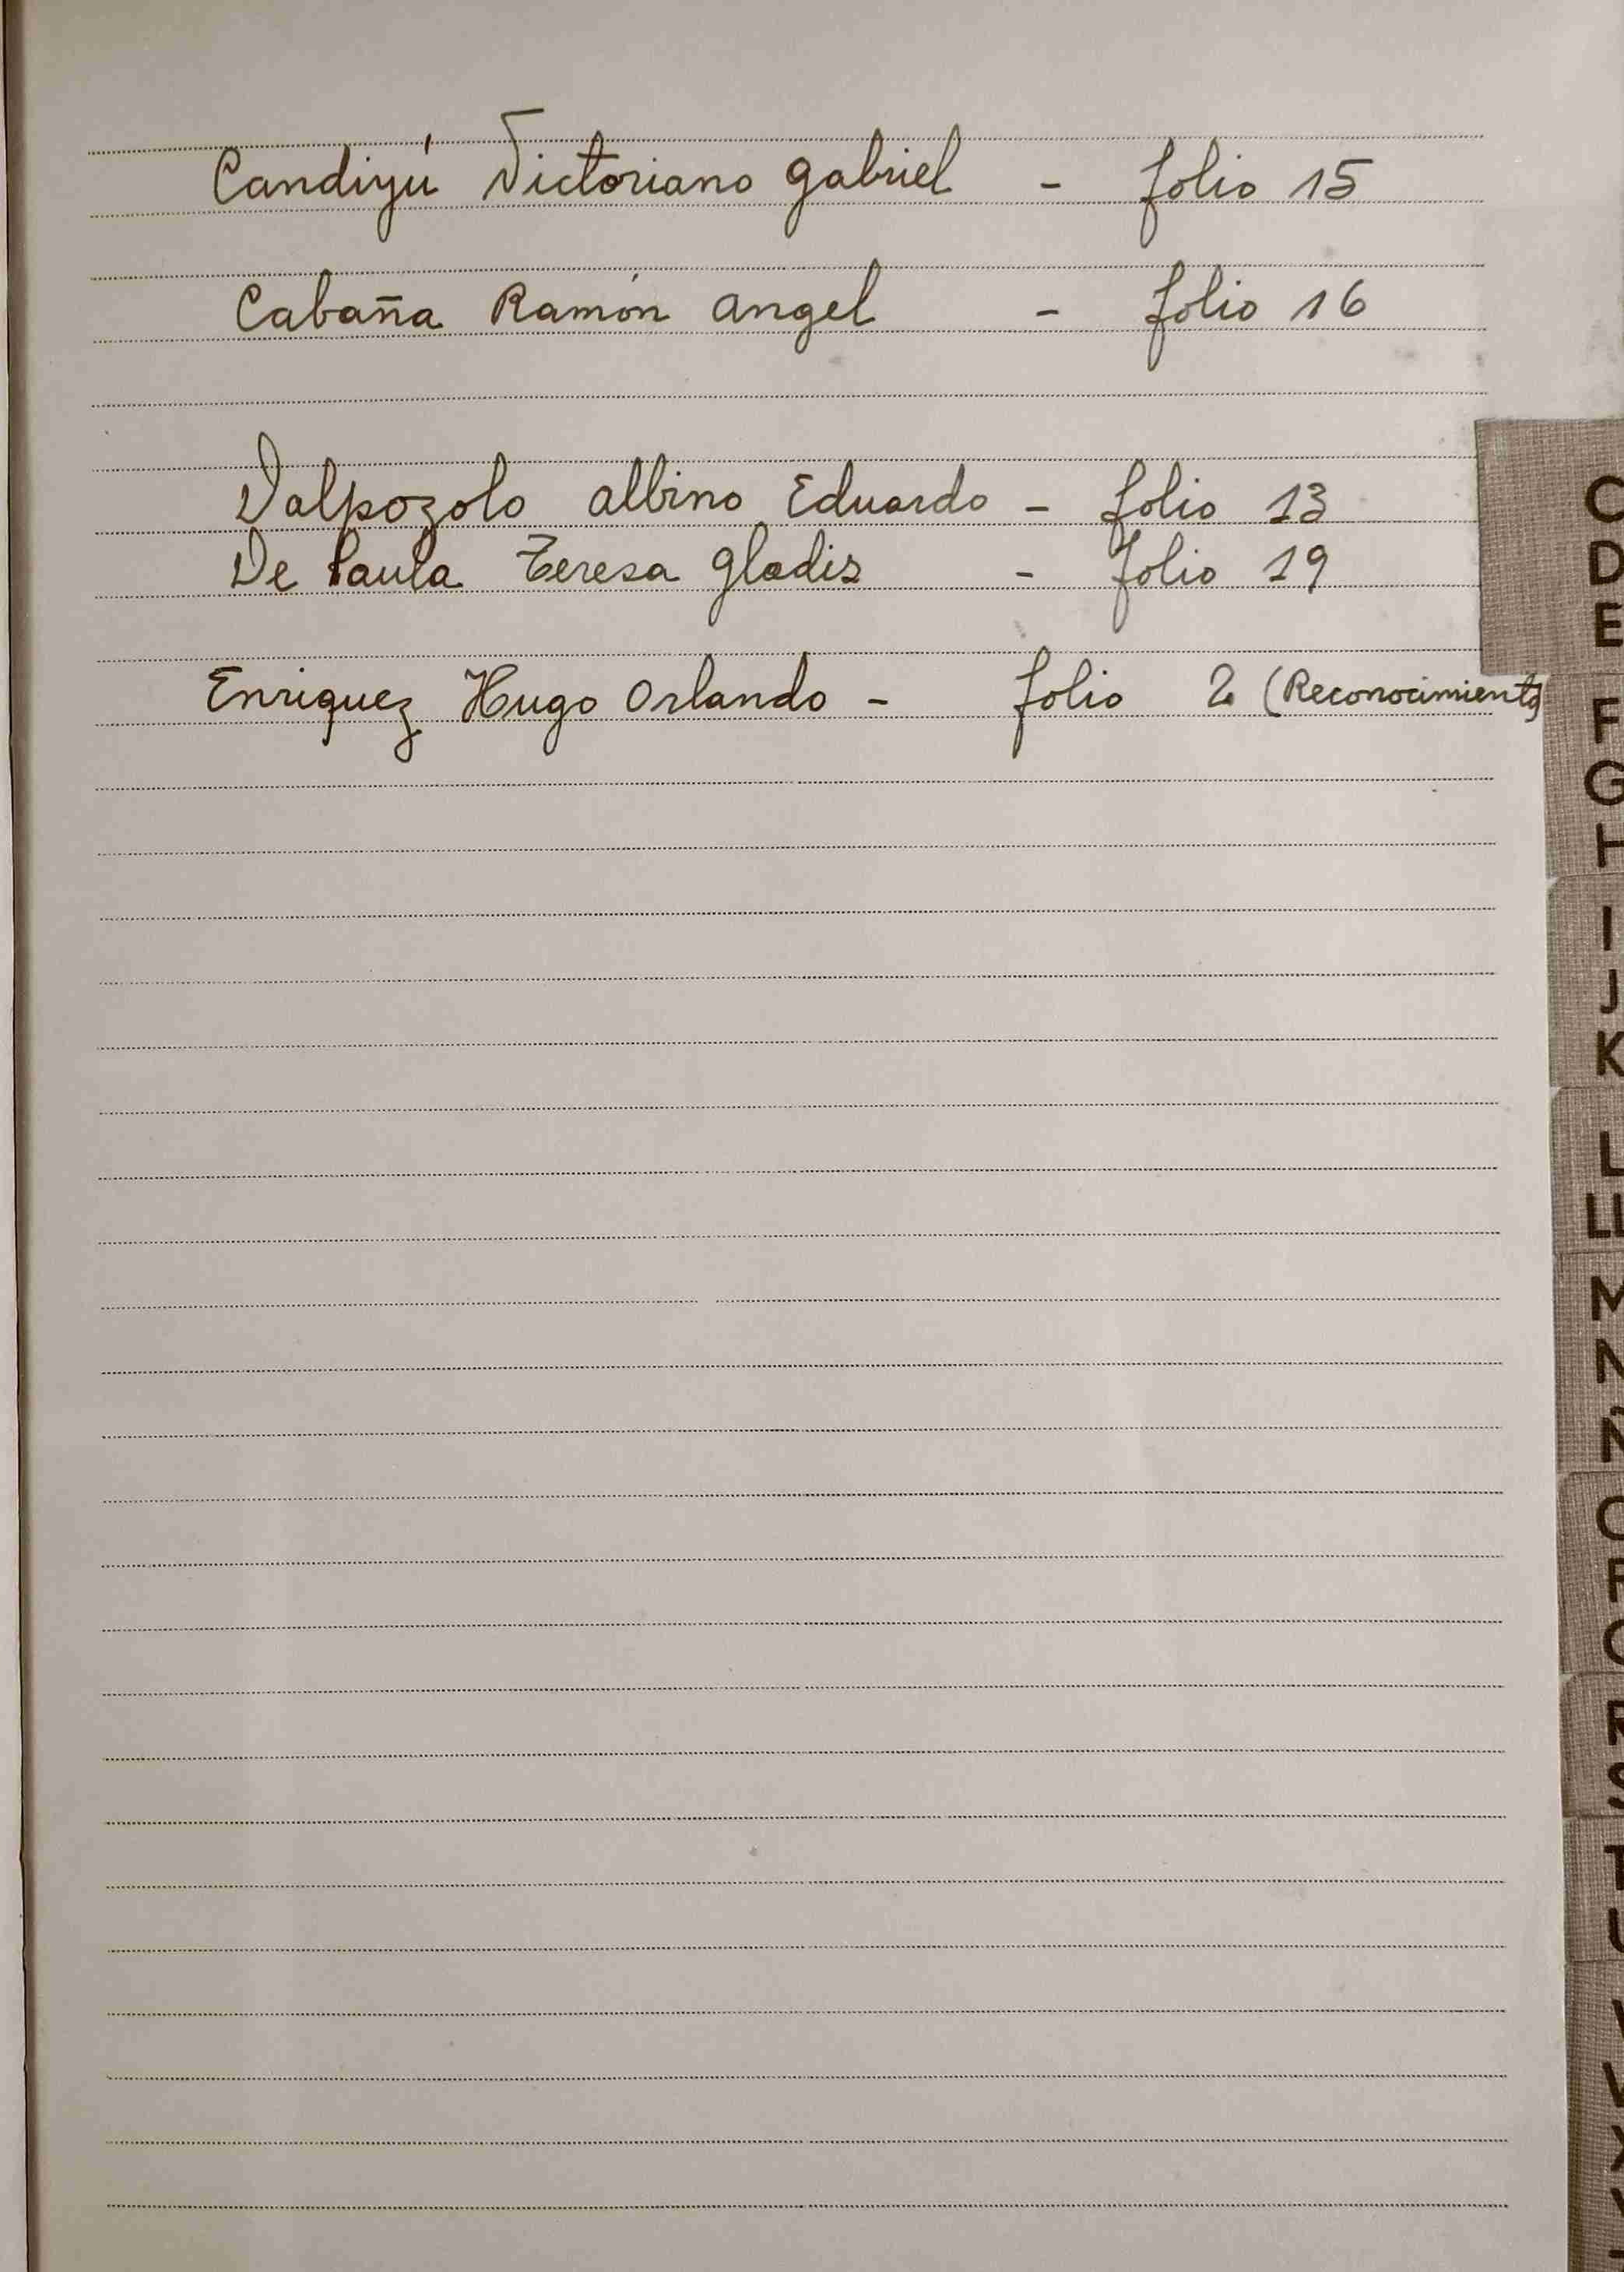 Candiyú Victoriano Gabriel - folio 15
Cabaña Ramón Angel - folio 16
Dalpozolo Albino Eduardo - folio 13
De Paula Teresa Gladis - folio 19
Enriquez Hugo Orlando - folio 2 (Reconocimiento)
C
D
E
F
G
H
I
J
K
L
LL
M
N
Ñ
O
P
Q
R
S
T
U
V